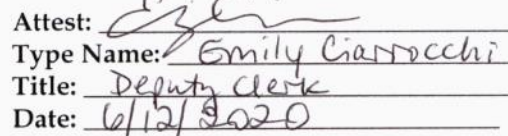 Attest:
Type Name: Emily Ciarrocchi
Title: Deputy Clerk
Date: 6/12/2020